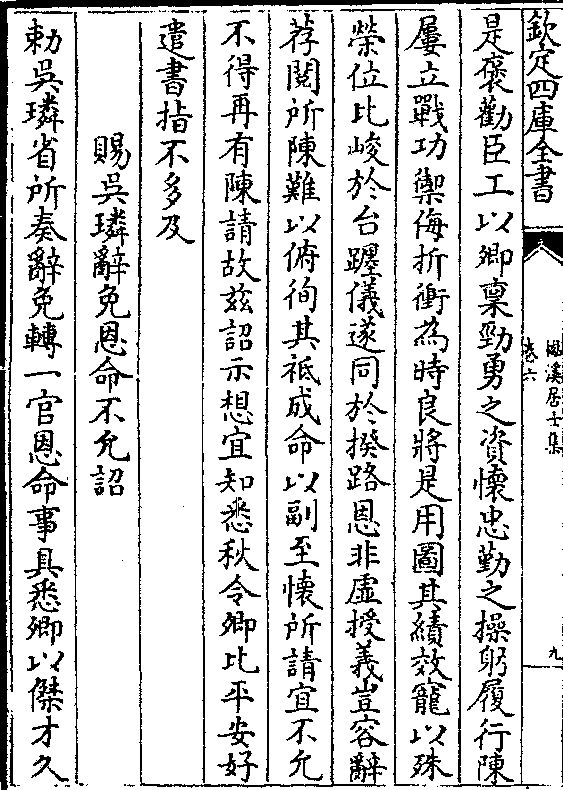 欽定四庫全書
卷六
九
是褒勸臣工以卿稟勁勇之資懷忠勤之操躬履行陳
屢立戰功禦侮折衝為時良將是用圖其績效寵以殊
榮位比峻於台躔儀遂同於揆路恩非虛授義豈容辭
荐閱所陳難以俯徇其祗成命以副至懷所請宜不允
不得再有陳請故兹詔示想宜知悉秋令卿比平安好
遣書指不多及
賜吳璘辭免恩命不允詔
勅吳璘省所奏辭免轉一官恩命事具悉卿以傑才久